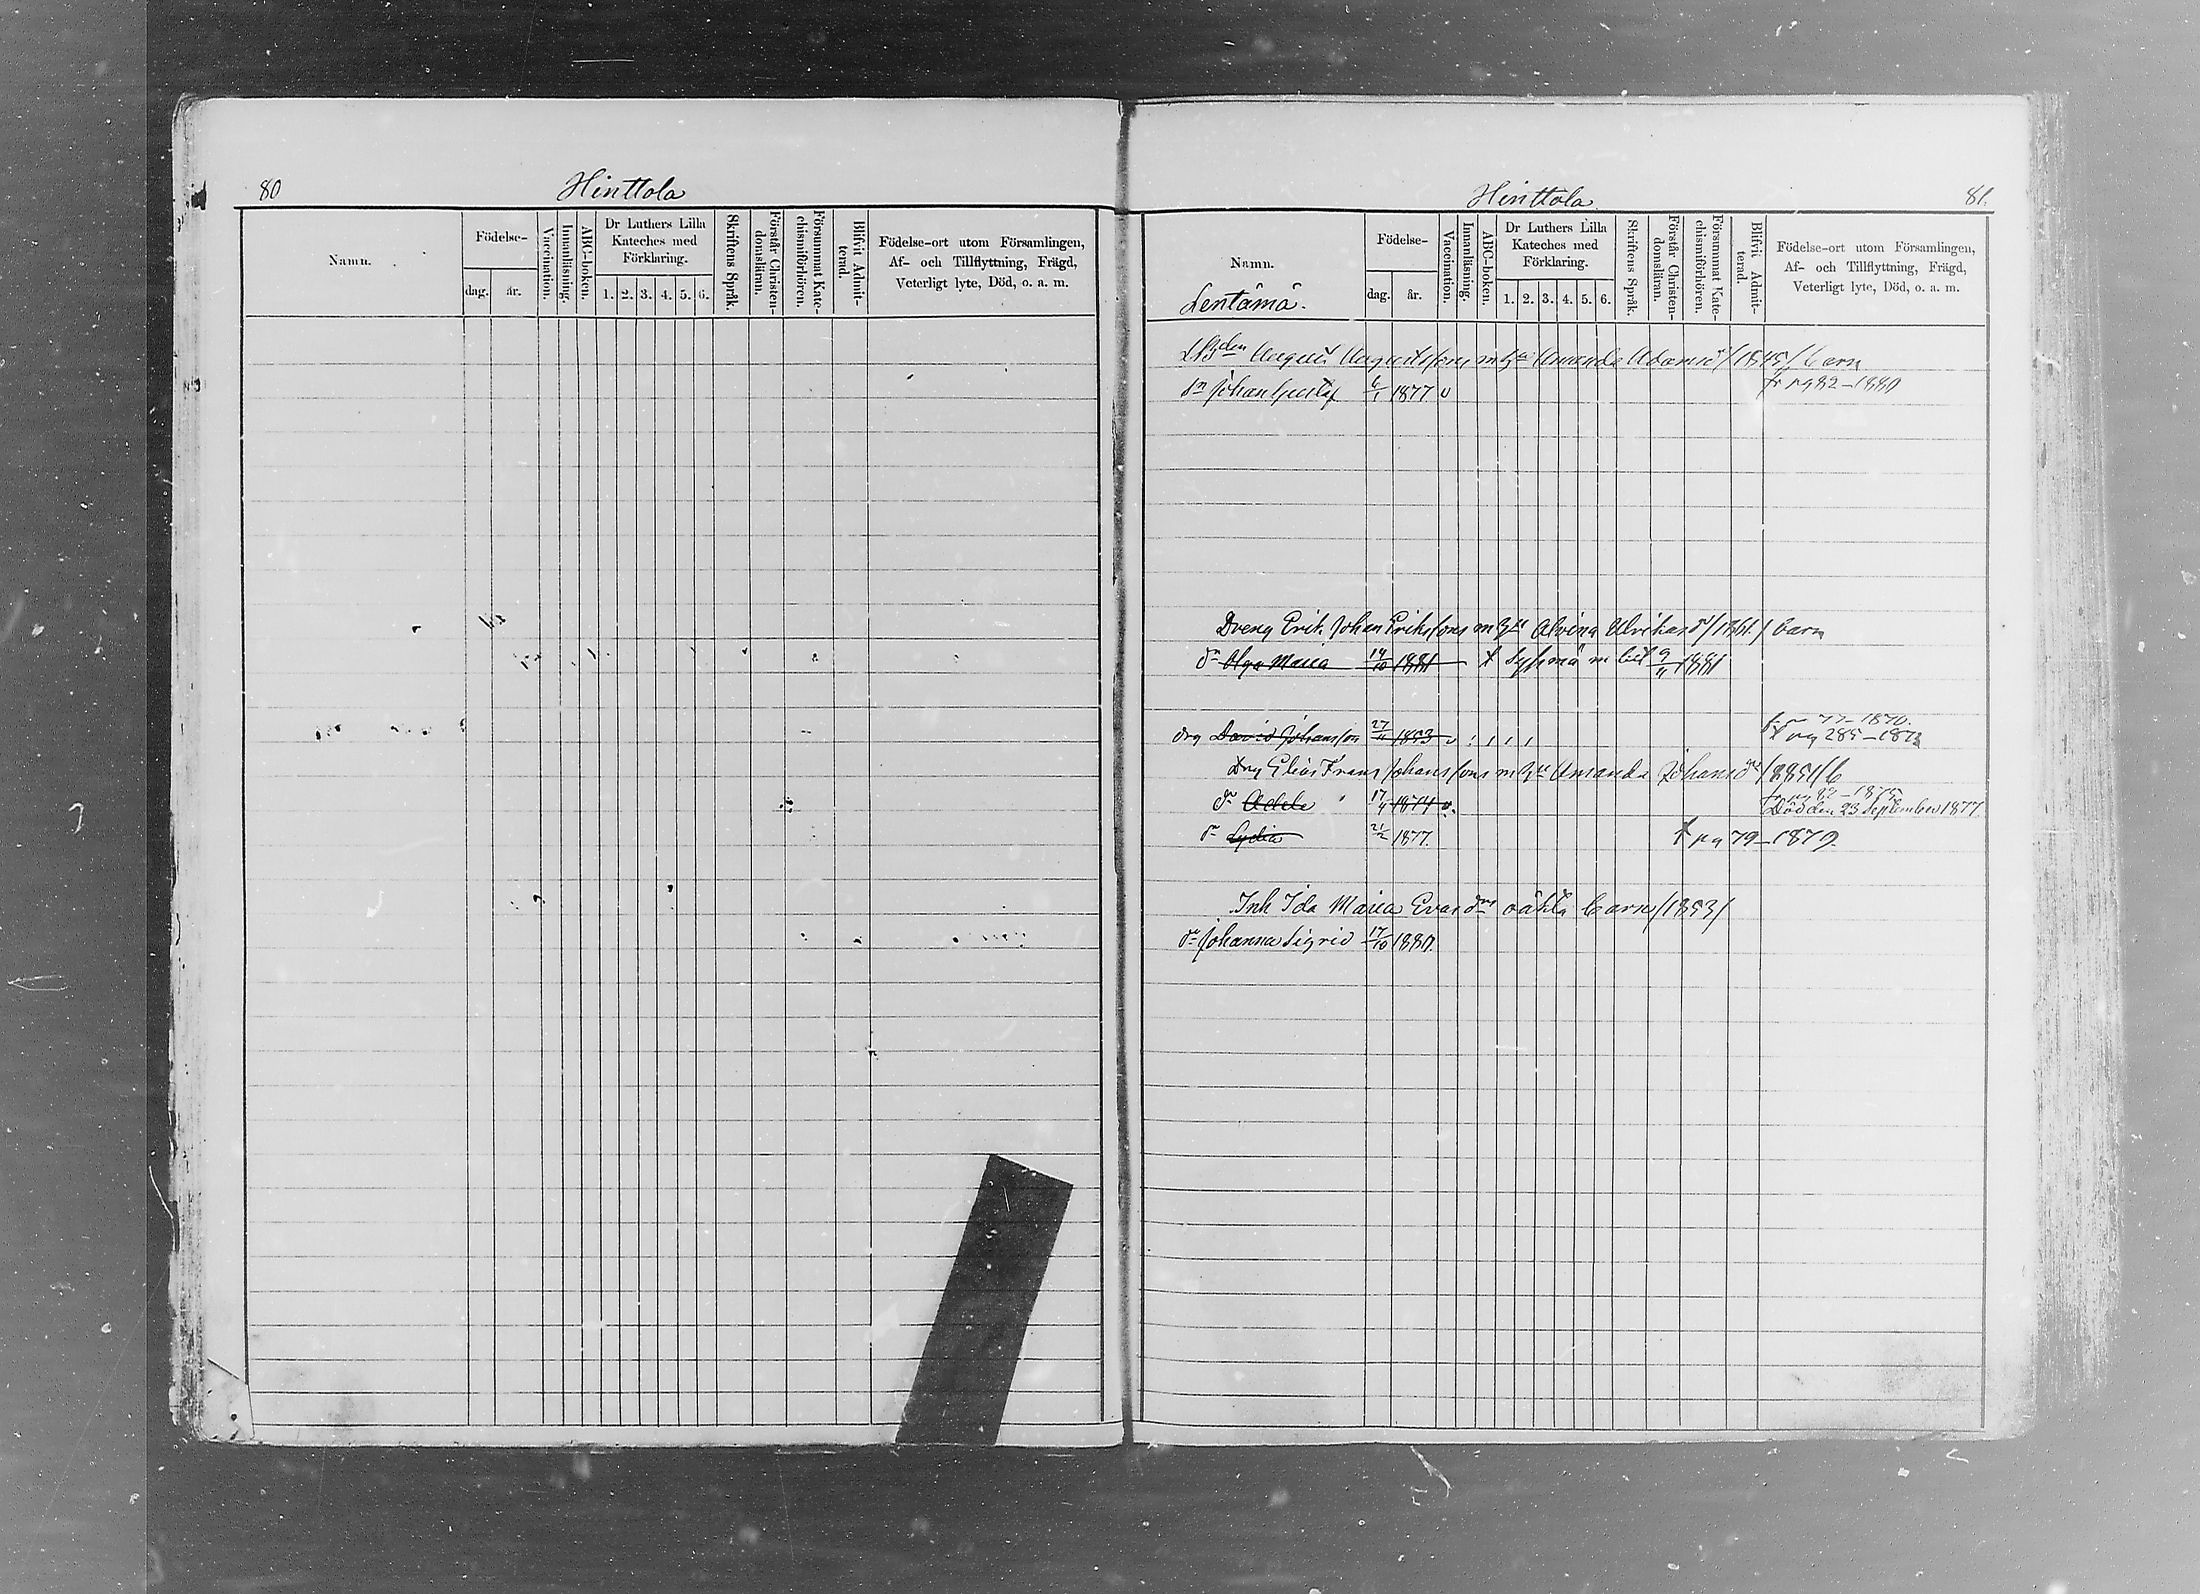 80 Hinttola
Namn. Födelse- dag. år. Vaccination. Innanläsning. ABC-boken. Dr Luthers Lilla Kateches med Förklaring. 1. 2. 3. 4. 5. 6. Skriftens Språk. Förstår Christen-domsläran. Försummat Kate-chismiförhören. Blifvit Admit-terad. Födelse-ort utom Församlingen, Af- och Tillflyttning, Frägd, Veterligt lyte, Död, o. a. m.
Hinttola 81.
Namn. Födelse- dag. år. Vaccination. Innanläsning. ABC-boken. Dr Luthers Lilla Kateches med Förklaring. 1. 2. 3. 4. 5. 6. Skriftens Språk. Förstår Christen-domsläran. Försummat Kate-chismiförhören. Blifvit Admit-terad. Födelse-ort utom Församlingen, Af- och Tillflyttning, Frägd, Veterligt lyte, Död, o. a. m.
Lentämä.
August Augustssons m hu Amanda Adamsd /1845/ barn
sn Johan Gustaf 6/1 1877 v fr pg 82-1880
Dreng Erik Johan Erikssons m hu Alvina Ulrikasd /1861/ barn
dr Olga Maria 14/10 1881 t Sysmä m bet 9/11 1881
drg David Johansson 27/11 1853 v 77-1870.
t pg 285-1873
Drg Elias Frans Johanssons m hu Amanda Johansdrs /1851/ b
dr Adele 17/4 1874 v. fr pg 82-1875
Död den 23 September 1877.
dr Lydia 21/2 1877. t pg 79-1879.
Inh Ida Maria Evasdrs oäkta barn /1853/
dr Johanna Sigrid 17/10 1880.